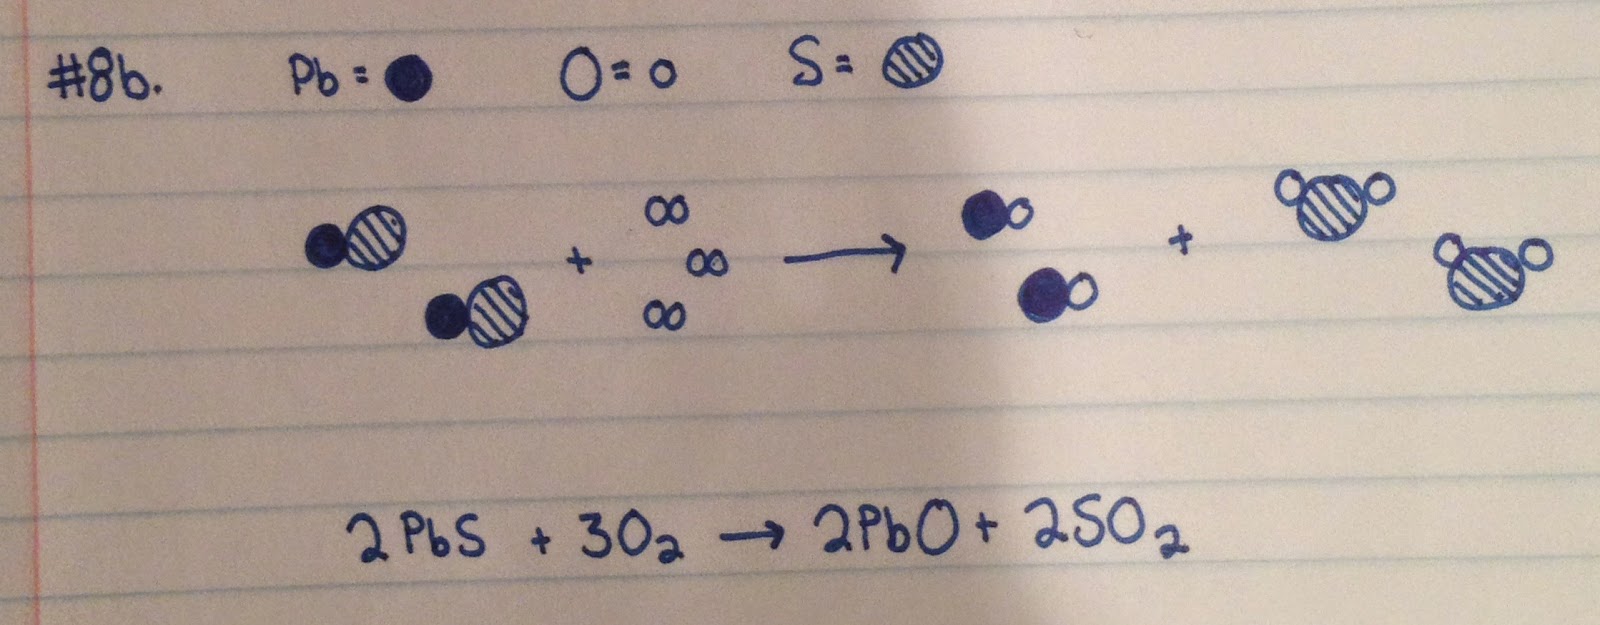 #8b. Pb = O = S =
+ → +
2PbS + 3O₂ → 2PbO + 2SO₂